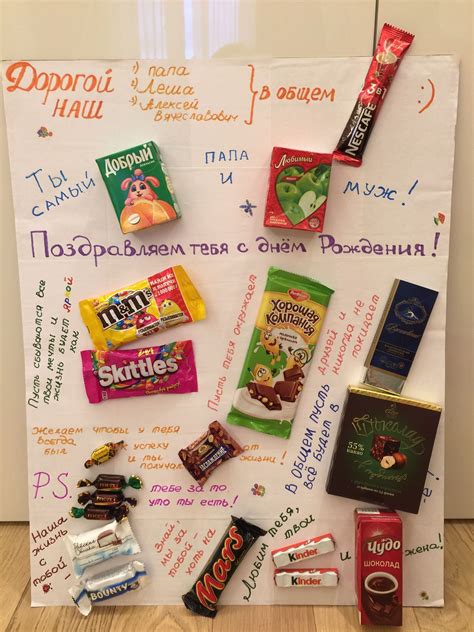 Дорогой наш
1) папа
2) Лёша
3) Алексей Вячеславович
в общем :)
3в1
NESCAFÉ
Ты самый
Добрый
папа и
Любимый
муж!
Поздравляем тебя с днём Рождения!
Пусть сбываются все твои мечты и жизнь будет яркой как
m&m's
Skittles
Пусть тебя окружает
Хорошая компания
друзей и никогда не покидает
Желаем чтобы у тебя всегда был
успеху и ты получал
от жизни!
В общем пусть всё будет в
Шоколад
55% какао
P.S.
тебе за то, что ты есть!
Наша жизнь с тобой -
BOUNTY
Знай, мы за тобой - хоть на
Mars
Любим тебя, твои
Kinder
Kinder
и
Чудо
ШОКОЛАД
жена!